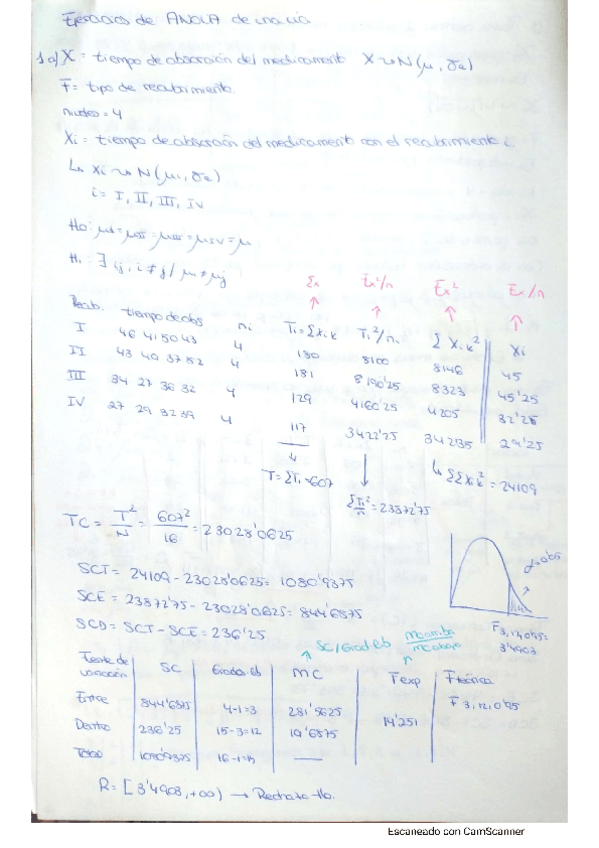 Ejercicios de ANOVA de una vía
1a) X = tiempo de absorción del medicamento X ~ N(μ, σe)
F = tipo de recubrimiento.
niveles = 4
Xi = tiempo de absorción del medicamento con el recubrimiento i.
↳ Xi ~ N(μi, σe)
i = I, II, III, IV
H0: μI = μII = μIII = μIV = μ
H1: ∃ i,j, i ≠ j / μi ≠ μj
Σx Σx²/n Σx² Σx/n
↑ ↑ ↑ ↑
Recub. tiempo de abs ni Ti = Σxik Ti²/ni Σxik² x̄i
I 46 41 50 43 4 180 8100 8146 45
II 43 49 37 52 4 181 8190'25 8323 45'25
III 34 27 36 32 4 129 4160'25 4205 32'25
IV 27 29 32 29 4 117 3422'25 29'25
T = ΣTi = 607 ↳ ΣΣxik² = 24109
ΣTi²/n = 23872'75
TC = T²/N = 607²/16 = 23028'0625
SCT = 24109 - 23028'0625 = 1080'9375
SCE = 23872'75 - 23028'0625 = 844'6875
SCD = SCT - SCE = 236'25
α=0'05
F3,12,0'95 =
3'4903
↗ SC/Grad lib MC arriba/MC abajo
Fuente de variación SC Grados lib MC Fexp F teórica
Entre 844'6875 4-1=3 281'5625 14'251 F 3,12,0'95
Dentro 236'25 15-3=12 19'6875
Total 1080'9375 16-1=15 —
R = [3'4903, +∞) → Rechazo H0.
Escaneado con CamScanner